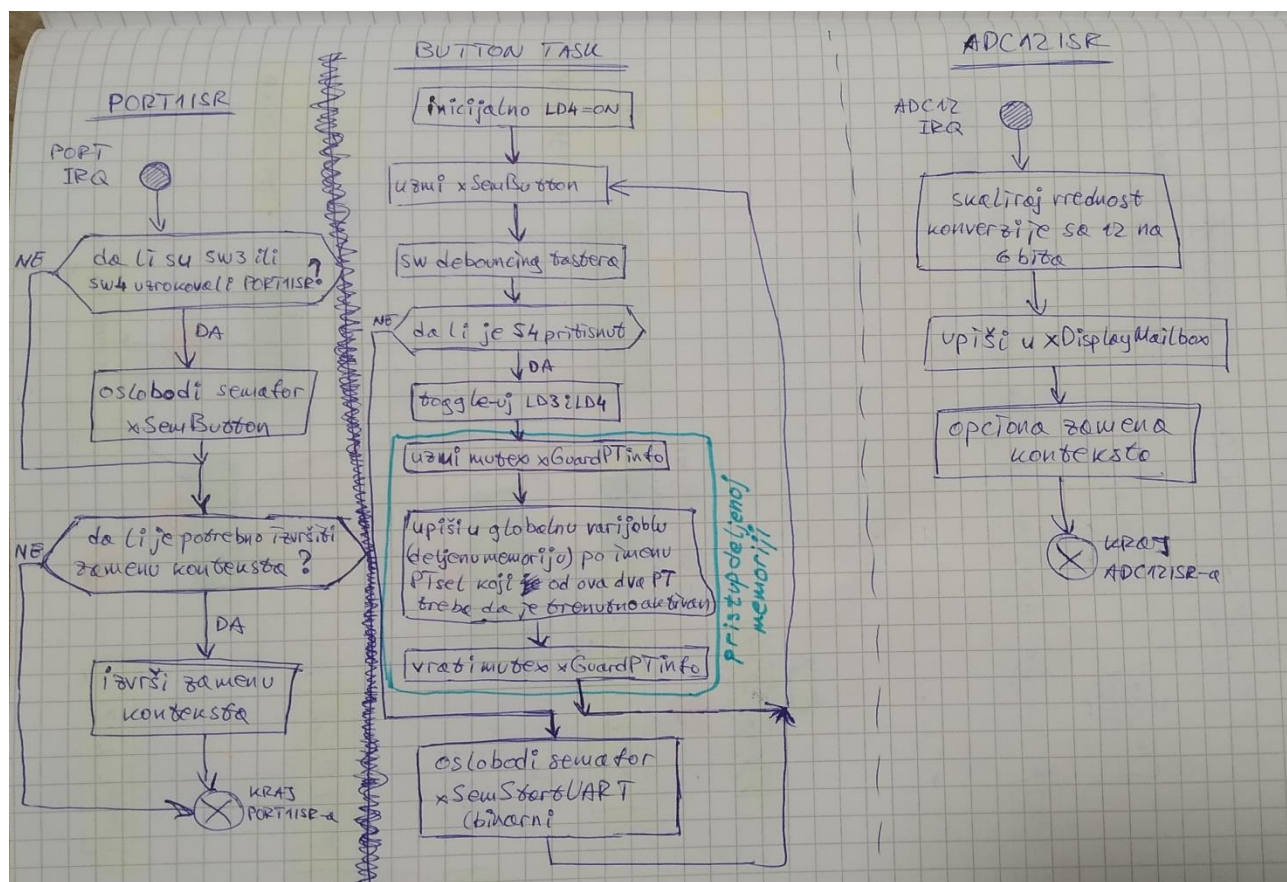 PORT1ISR
PORT
IRQ
NE
da li su SW3 ili
SW4 uzrokovali PORT1ISR?
DA
oslobodi semafor
xSemButton
NE
da li je potrebno izvršiti
zamenu konteksta?
DA
izvrši zamenu
konteksta
KRAJ
PORT1ISR-a
BUTTON TASK
inicijalno LD4=ON
uzmi xSemButton
sw debouncing tastera
NE
da li je S4 pritisnut
DA
toggle-uj LD3 i LD4
uzmi mutex xGuardPTinfo
upiši u globalnu varijablu
(deljenu memoriju) po imenu
PTsel koji od ova dva PT
treba da je trenutno aktivan
vrati mutex xGuardPTinfo
pristup deljenoj
memoriji
oslobodi semafor
xSemStartUART
(binarni
ADC12ISR
ADC12
IRQ
skaliraj vrednost
konverzije sa 12 na
6 bita
upiši u xDisplayMailbox
opciona zamena
konteksta
KRAJ
ADC12ISR-a